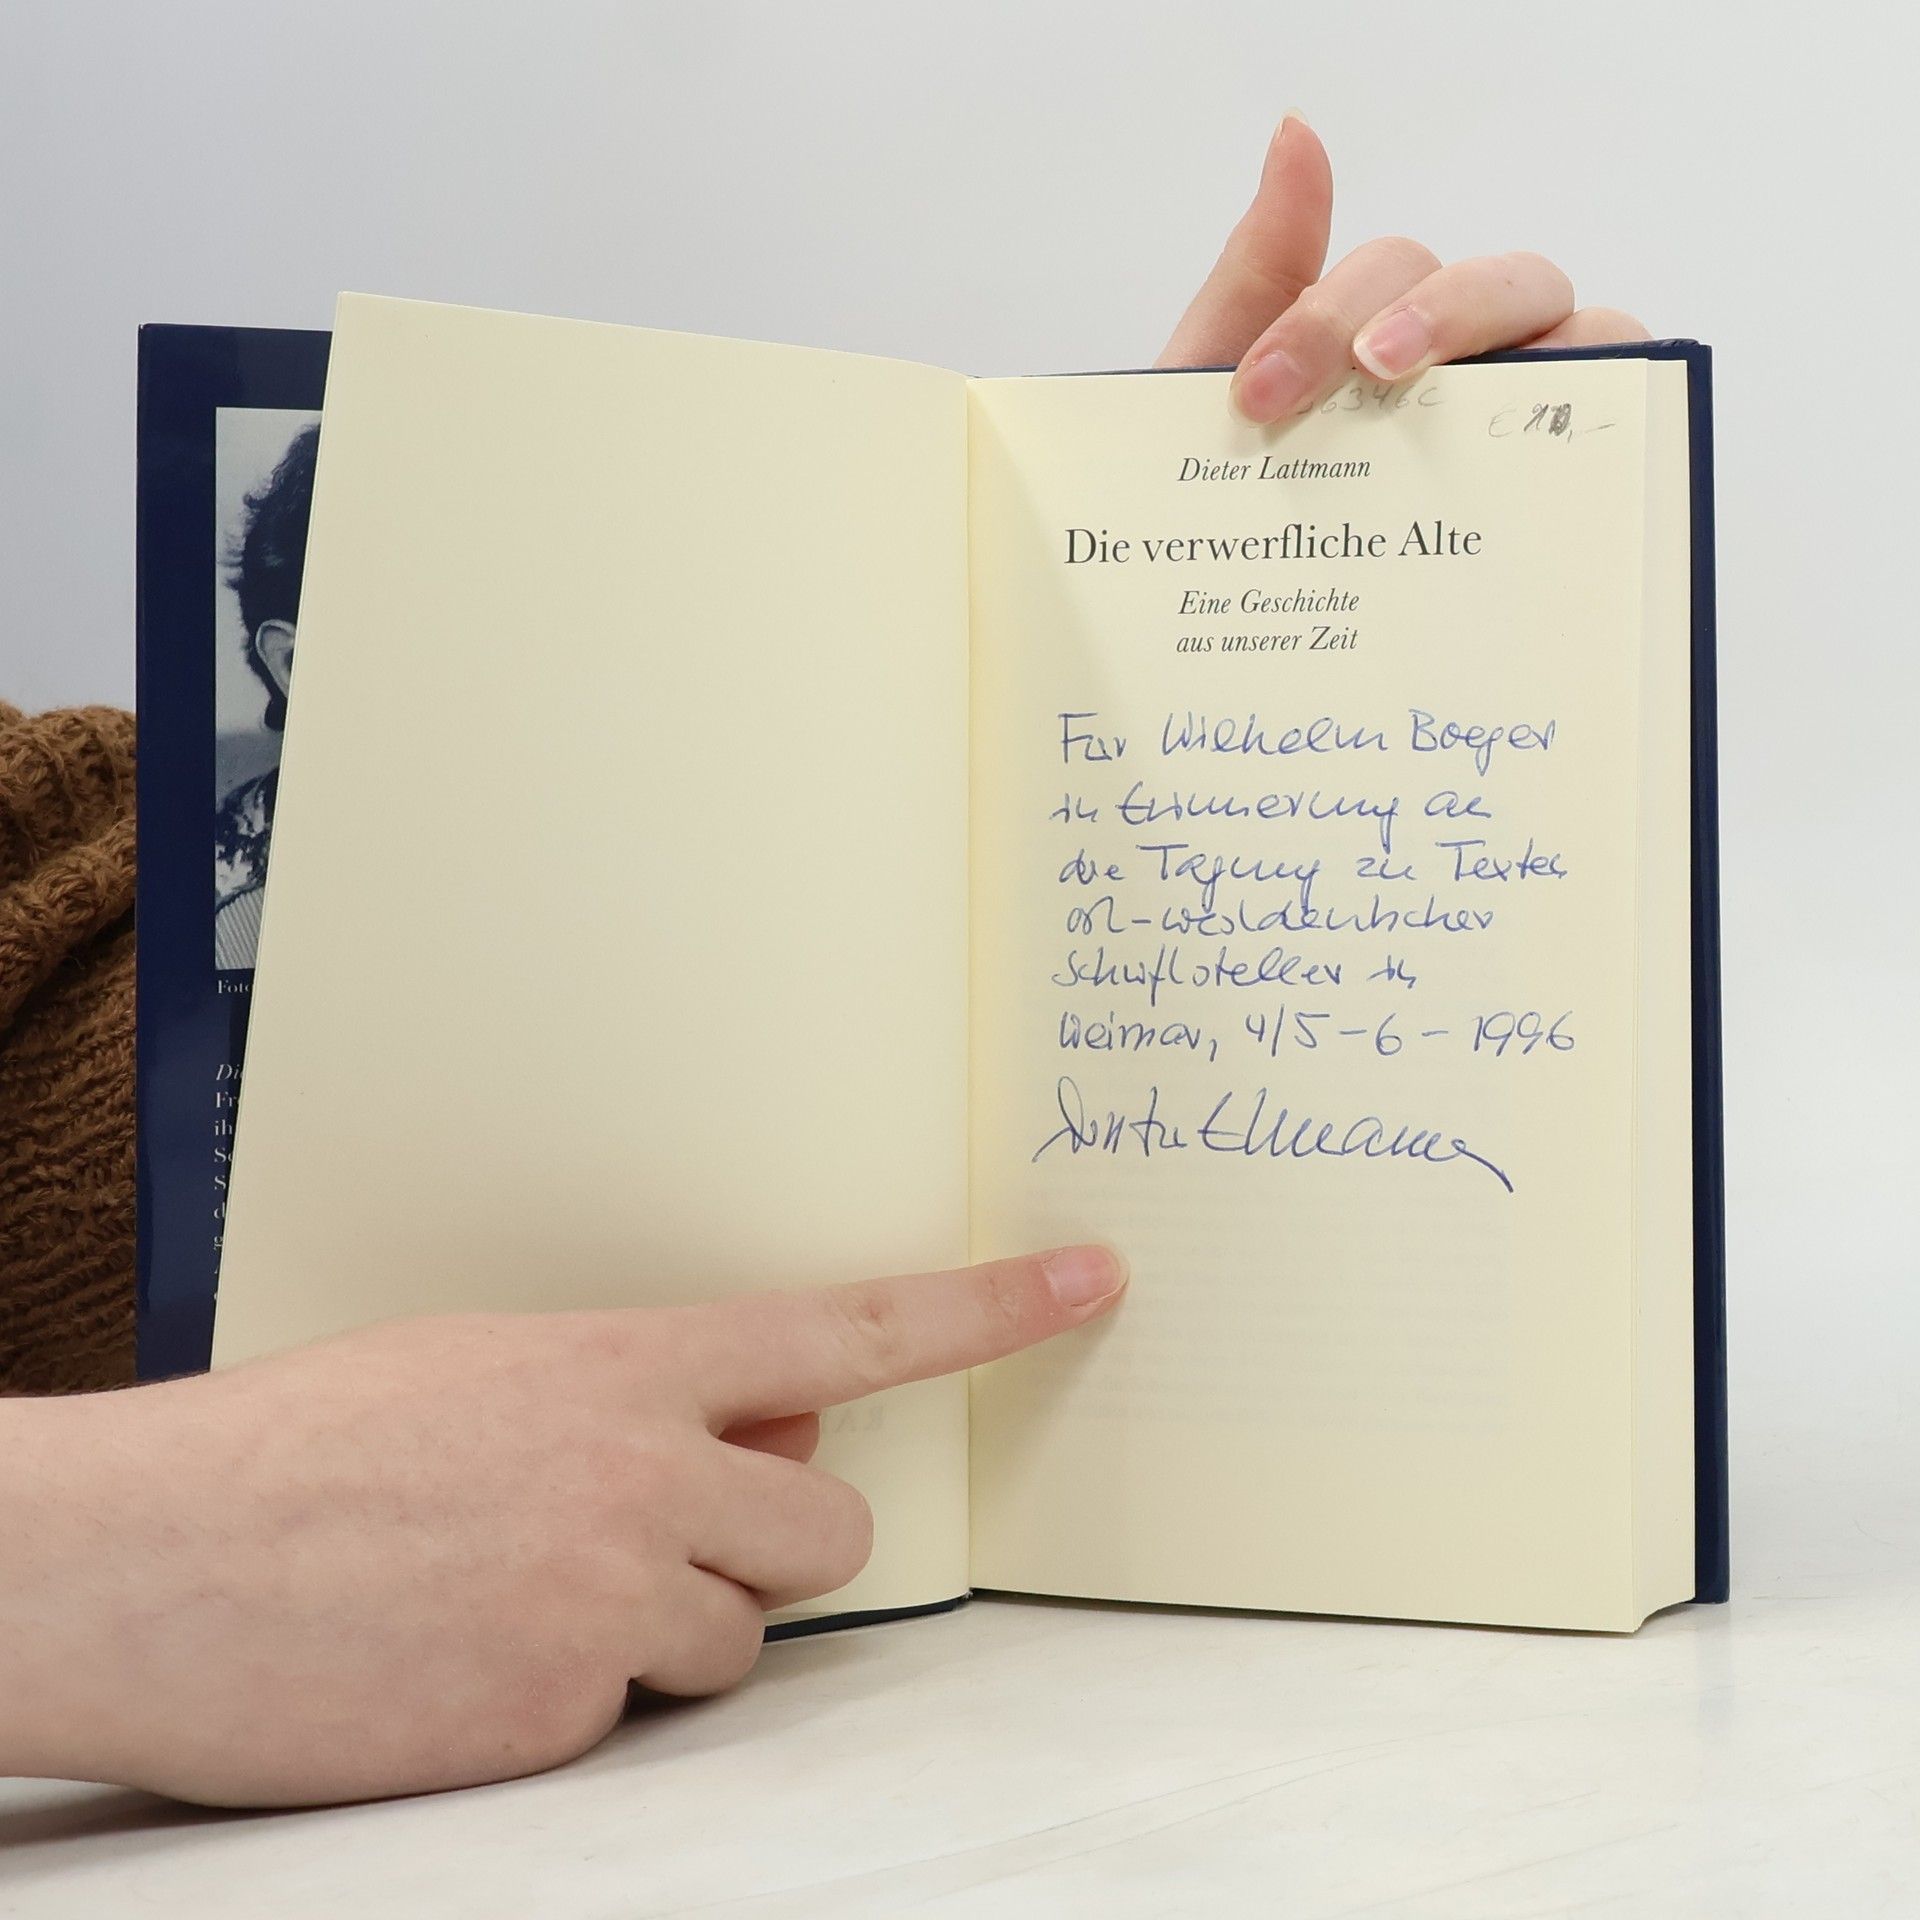 Foto
Die
ih
36346C
€ 10,-
Dieter Lattmann
Die verwerfliche Alte
Eine Geschichte
aus unserer Zeit
Für Wilhelm Boeger
in Erinnerung an
die Tagung zu Texten
ost-westdeutscher
Schriftsteller in
Weimar, 4/5-6-1996
Dieter Lattmann